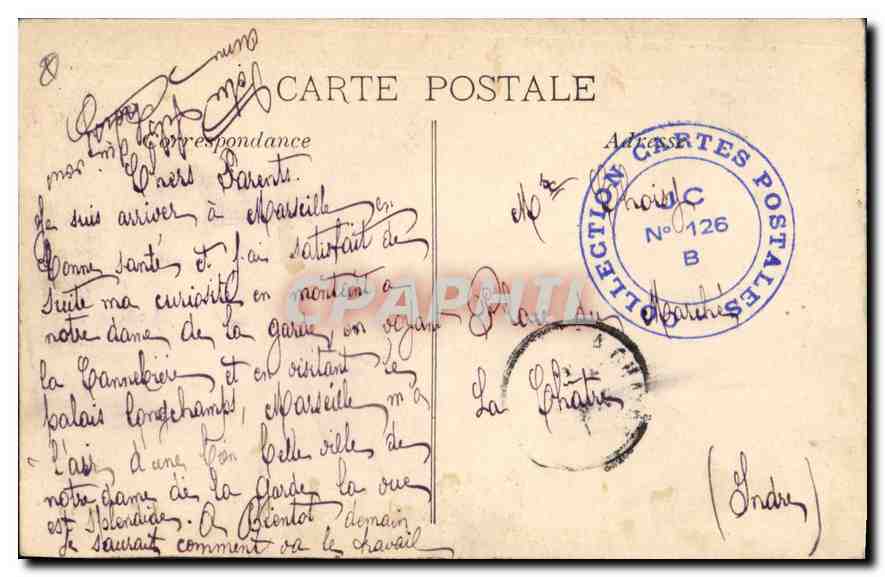 CARTE POSTALE
Correspondance
Adresse
Chers Parents.
Je suis arriver à Marseille en
bonne santé et j'ai satisfait de
suite ma curiosité en montant à
notre dame de la garde, en voyant
la Cannebière et en visitant le
palais Longchamps, Marseille m'a
l'air d'une bon belle ville de
notre dame de la garde la vue
est splendide. A Bientot demain
je saurait comment va le travail
Mme Choisy
Place du Marché
La Châtre
(Indre)
COLLECTION CARTES POSTALES
JC
N° 126
B
CPAPHIL